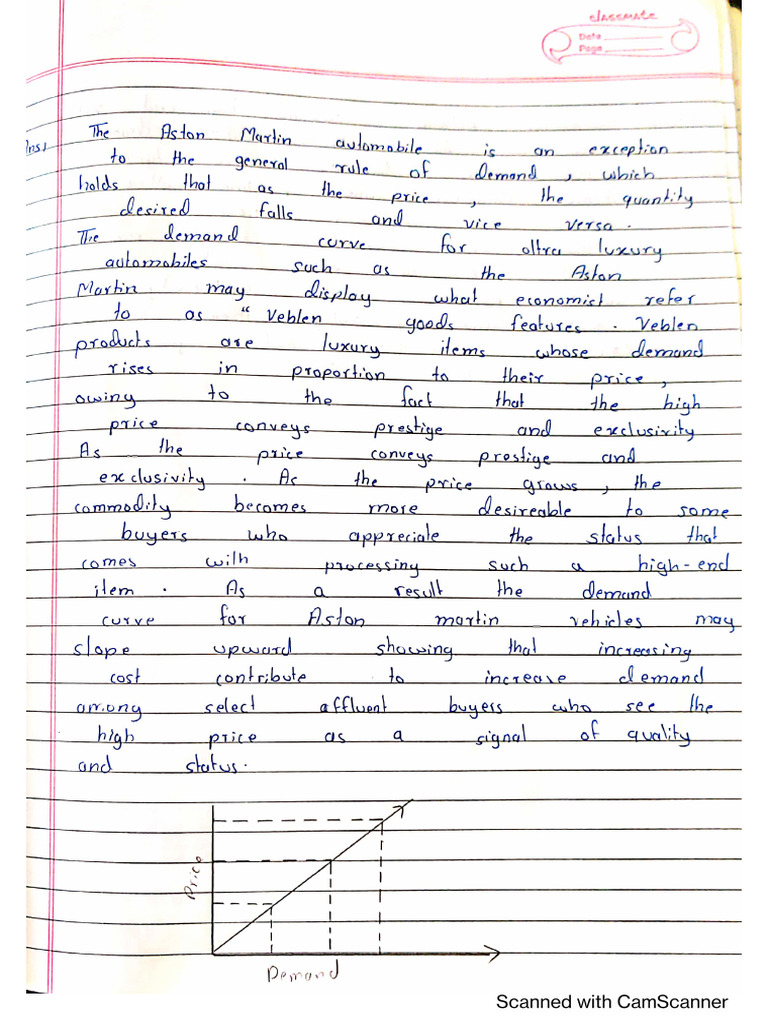 classmate
Date
Page
Ans1 The Aston Martin automobile is an exception
to the general rule of demand, which
holds that as the price, the quantity
desired falls and vice versa.
The demand curve for oltra luxury
automobiles such as the Aston
Martin may display what economist refer
to as "Veblen goods features. Veblen
products are luxury items whose demand
rises in proportion to their price,
owing to the fact that the high
price conveys prestige and exclusivity
As the price conveys prestige and
exclusivity. As the price grows, the
commodity becomes more desireable to some
buyers who appreciate the status that
comes with processing such a high-end
item. As a result the demand
curve for Aston martin vehicles may
slope upward showing that increasing
cost contribute to increase demand
among select affluent buyers who see the
high price as a signal of quality
and status.
Price
Demand
Scanned with CamScanner